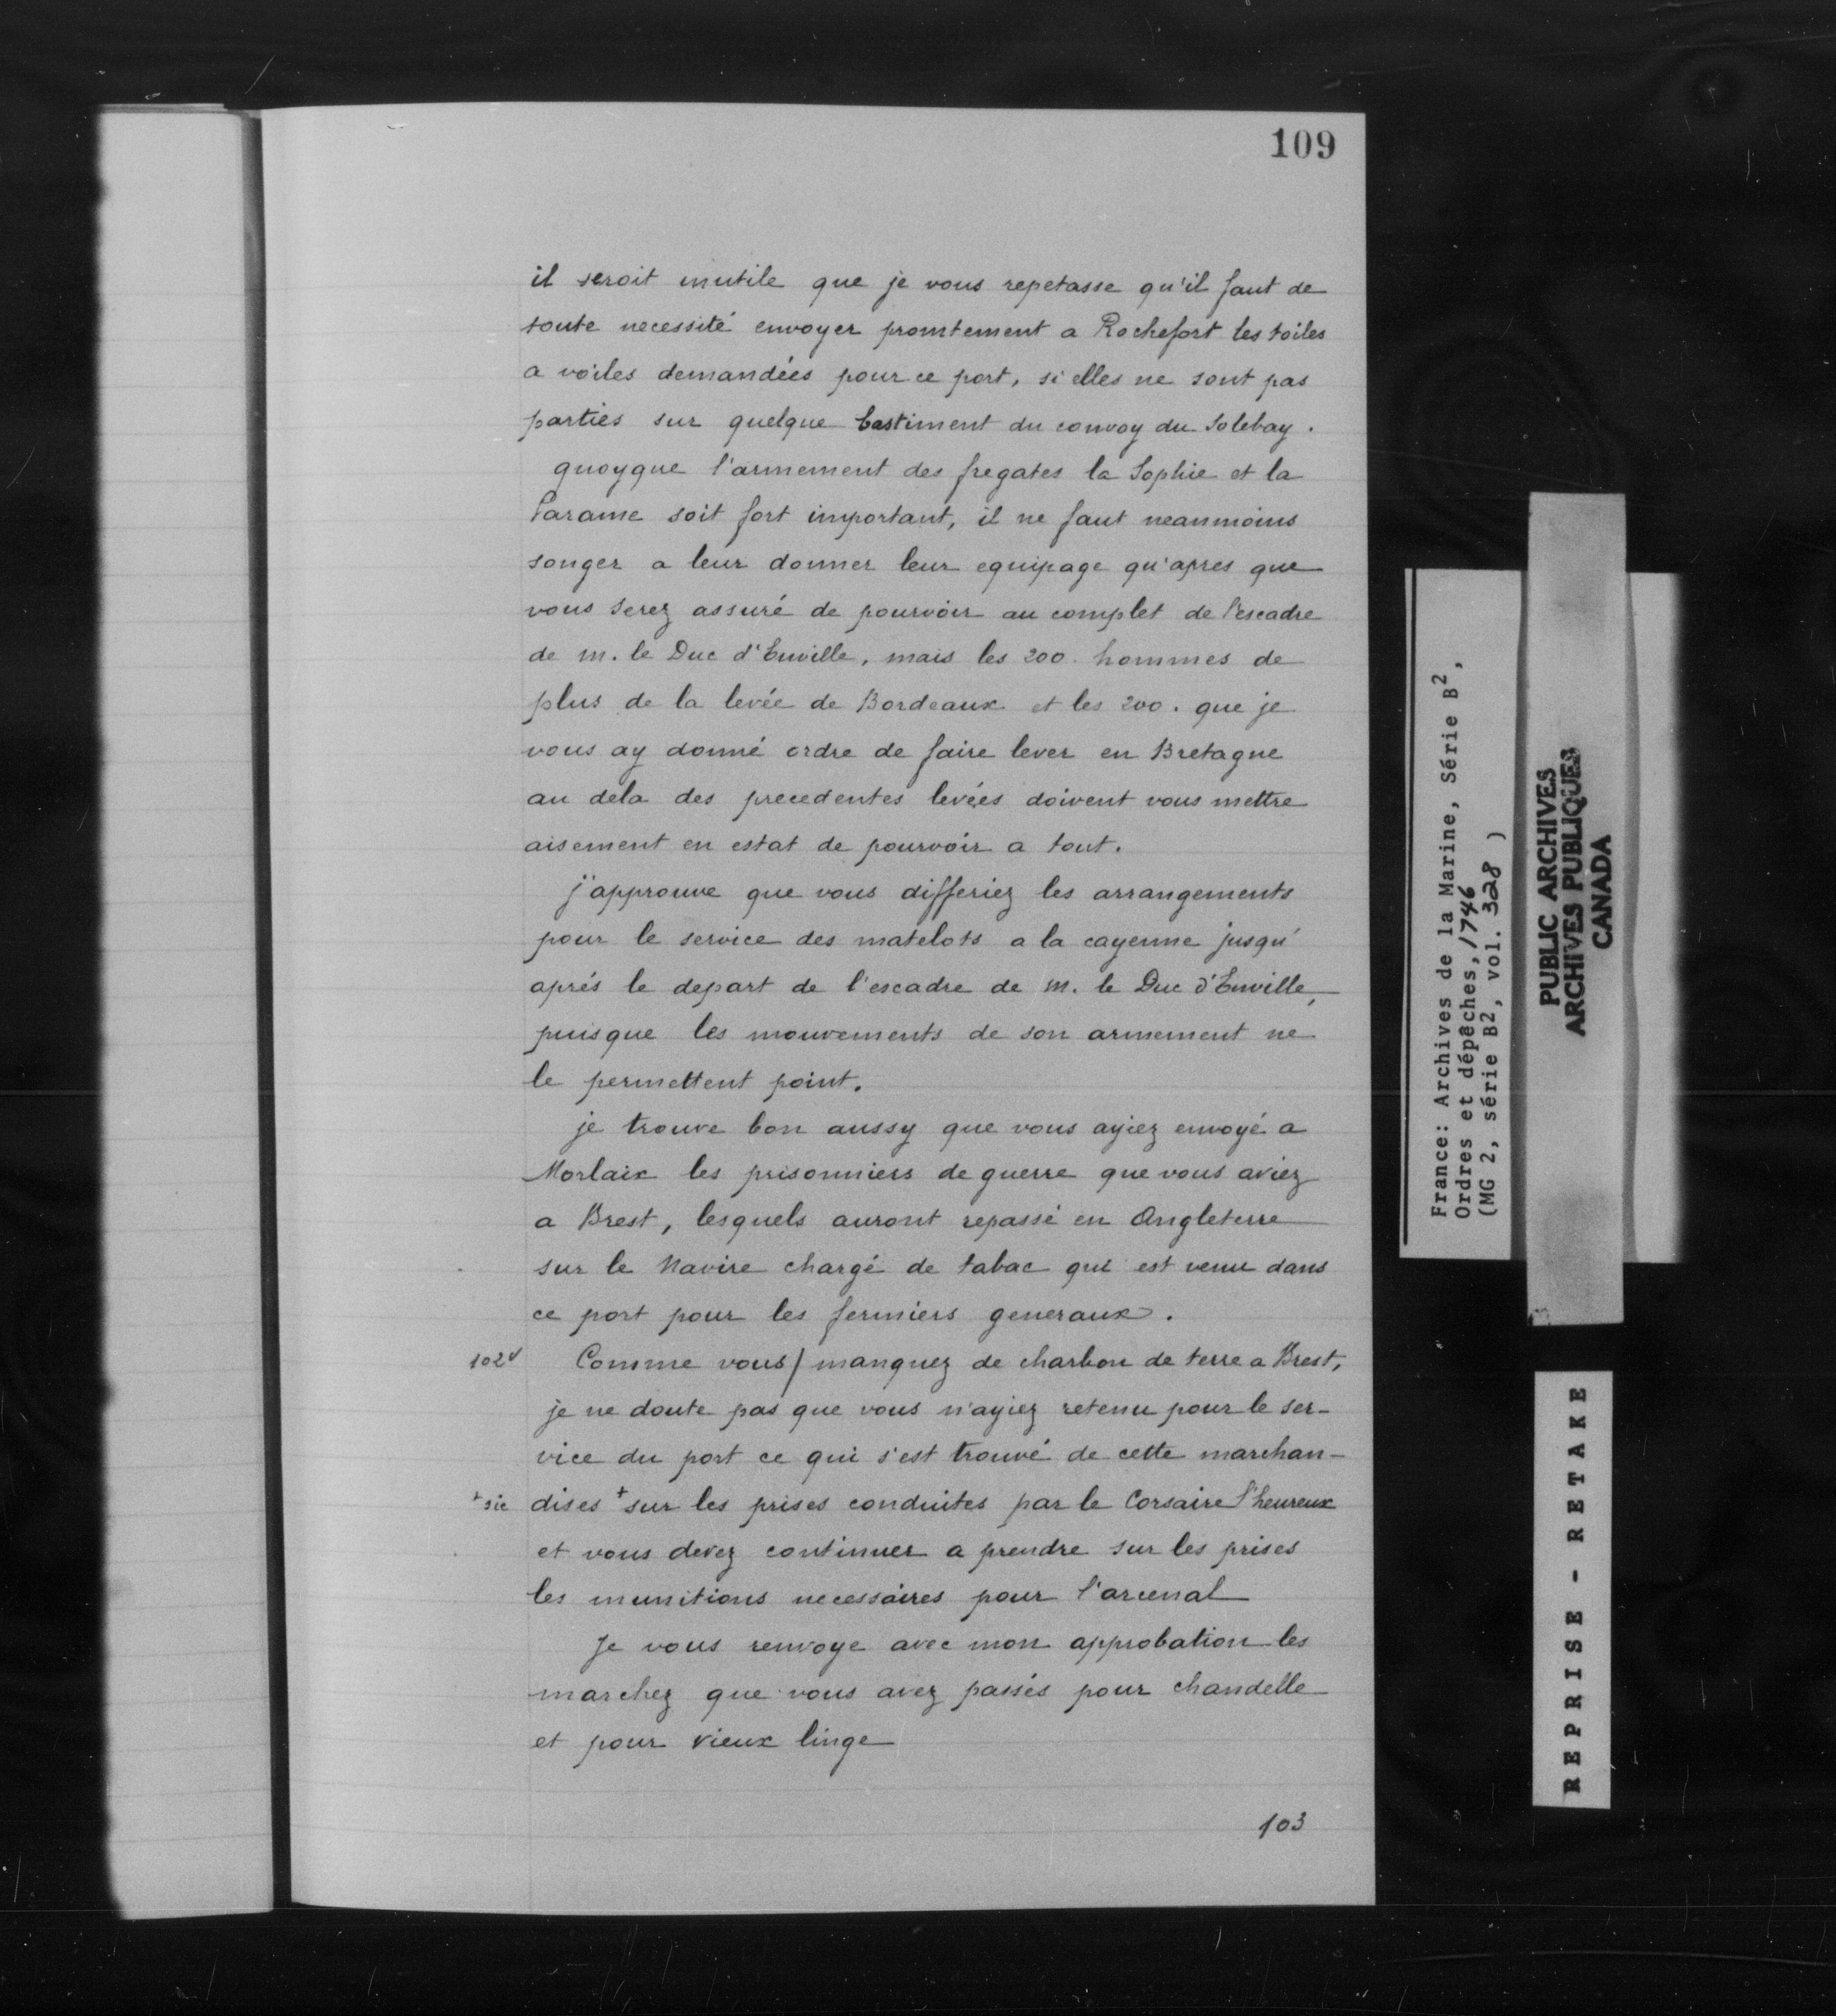 109
il seroit inutile que je vous repetasse qu'il faut de
toute necessité envoyer promtement a Rochefort les toiles
a voiles demandées pour ce port, si elles ne sont pas
parties sur quelque bastiment du convoy du Solebay.
quoyque l'armement des fregates la Sophie et la
Parame soit fort important, il ne faut neanmoins
songer a leur donner leur equipage qu'apres que
vous serez assuré de pourvoir au complet de l'escadre
de M. le Duc d'Enville, mais les 200. hommes de
plus de la levée de Bordeaux et les 200. que je
vous ay donné ordre de faire lever en Bretagne
au dela des precedentes levées doivent vous mettre
aisement en estat de pourvoir a tout.
j'approuve que vous differiez les arrangements
pour le service des matelots a la cayenne jusqu'
aprés le depart de l'escadre de M. le Duc d'Enville,
puisque les mouvements de son armement ne
le permettent point.
je trouve bon aussy que vous ayiez envoyé a
Morlaix les prisonniers de guerre que vous aviez
a Brest, lesquels auront repassé en Angleterre
sur le Navire chargé de tabac qui est venu dans
ce port pour les fermiers generaux.
102v Comme vous/manquez de charbon de terre a Brest,
je ne doute pas que vous n'ayiez retenu pour le ser-
vice du port ce qui s'est trouvé de cette marchan-
+sic dises + sur les prises conduites par le Corsaire l'heureux
et vous devez continuer a prendre sur les prises
les munitions necessaires pour l'arcenal
Je vous renvoye avec mon approbation les
marchez que vous avez passés pour chandelle
et pour vieux linge
103
France: Archives de la Marine, Série B2,
Ordres et dépêches, 1746
(MG 2, série B2, vol. 328 )
PUBLIC ARCHIVES
ARCHIVES PUBLIQUES
CANADA
REPRISE - RETAKE